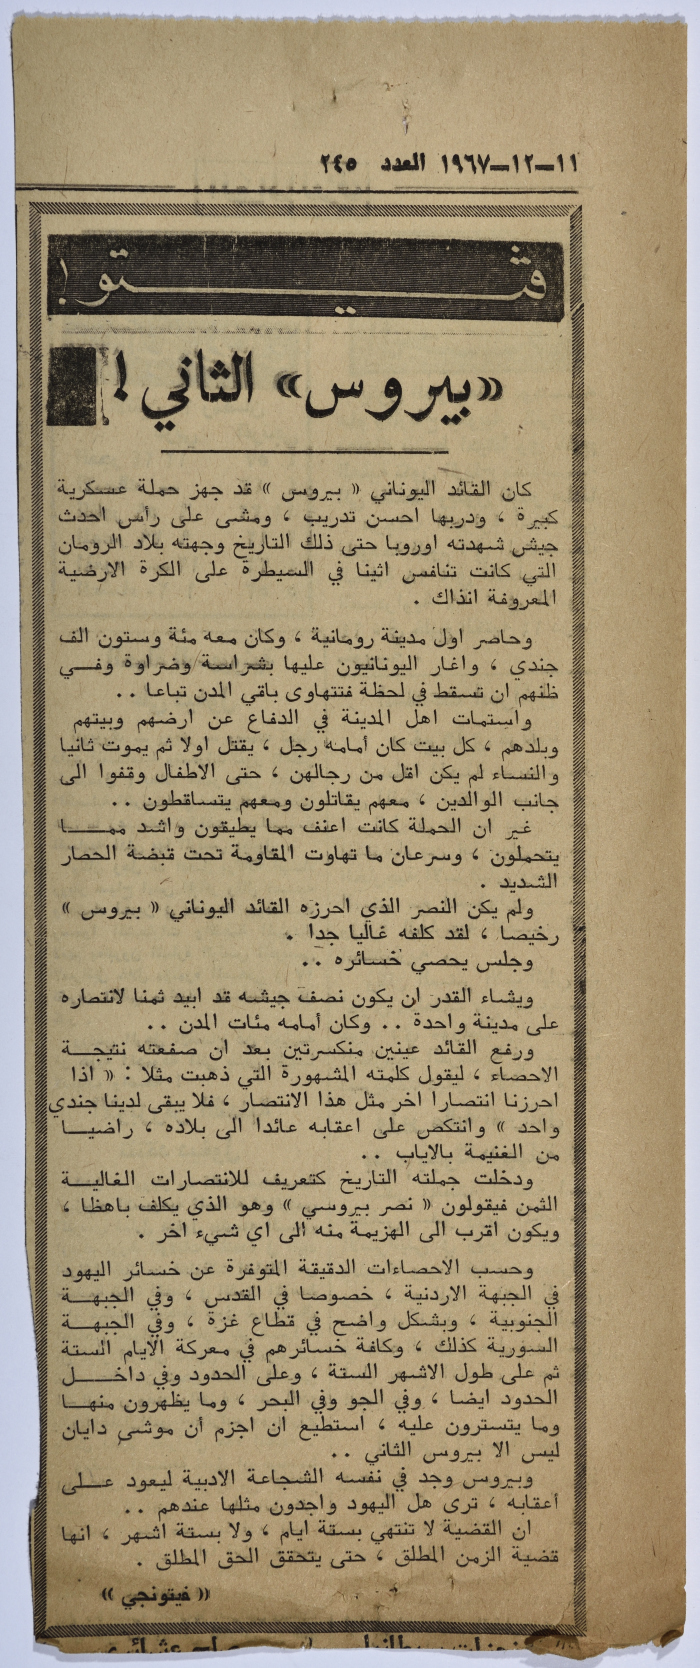 ١١-١٢-١٩٦٧ العدد ٢٤٥
ڤيتو !
«بيروس» الثاني !
كان القائد اليوناني « بيروس » قد جهز حملة عسكرية
كبيرة ، ودربها احسن تدريب ، ومشى على رأس احدث
جيش شهدته اوروبا حتى ذلك التاريخ وجهته بلاد الرومان
التي كانت تنافس اثينا في السيطرة على الكرة الارضية
المعروفة انذاك .
وحاصر اول مدينة رومانية ، وكان معه مئة وستون الف
جندي ، واغار اليونانيون عليها بشراسة وضراوة وفي
ظنهم ان تسقط في لحظة فتتهاوى باقي المدن تباعا ..
واستمات اهل المدينة في الدفاع عن ارضهم وبيتهم
وبلدهم ، كل بيت كان أمامه رجل ، يقتل اولا ثم يموت ثانيا
والنساء لم يكن اقل من رجالهن ، حتى الاطفال وقفوا الى
جانب الوالدين ، معهم يقاتلون ومعهم يتساقطون ..
غير ان الحملة كانت اعنف مما يطيقون واشد ممـا
يتحملون ، وسرعان ما تهاوت المقاومة تحت قبضة الحصار
الشديد .
ولم يكن النصر الذي احرزه القائد اليوناني « بيروس »
رخيصا ، لقد كلفه غاليا جدا .
وجلس يحصي خسائره ..
ويشاء القدر ان يكون نصف جيشه قد ابيد ثمنا لانتصاره
على مدينة واحدة .. وكان أمامه مئات المدن ..
ورفع القائد عينين منكسرتين بعد ان صفعته نتيجـة
الاحصاء ، ليقول كلمته المشهورة التي ذهبت مثلا : « اذا
احرزنا انتصارا اخر مثل هذا الانتصار ، فلا يبقى لدينا جندي
واحد » وانتكص على اعقابه عائدا الى بلاده ، راضيـا
من الغنيمة بالاياب ..
ودخلت جملته التاريخ كتعريف للانتصارات الغالية
الثمن فيقولون « نصر بيروسي » وهو الذي يكلف باهظا ،
ويكون اقرب الى الهزيمة منه الى اي شيء اخر .
وحسب الاحصاءات الدقيقة المتوفرة عن خسائر اليهود
في الجبهة الاردنية ، خصوصا في القدس ، وفي الجبهـة
الجنوبية ، وبشكل واضح في قطاع غزة ، وفي الجبهـة
السورية كذلك ، وكافة خسائرهم في معركة الايام الستة
ثم على طول الاشهر الستة ، وعلى الحدود وفي داخـل
الحدود ايضا ، وفي الجو وفي البحر ، وما يظهرون منهـا
وما يتسترون عليه ، استطيع ان اجزم أن موشى دايان
ليس الا بيروس الثاني ..
وبيروس وجد في نفسه الشجاعة الادبية ليعود علـى
أعقابه ، ترى هل اليهود واجدون مثلها عندهم ..
ان القضية لا تنتهي بستة ايام ، ولا بستة اشهر ، انها
قضية الزمن المطلق ، حتى يتحقق الحق المطلق .
« فيتونجي »